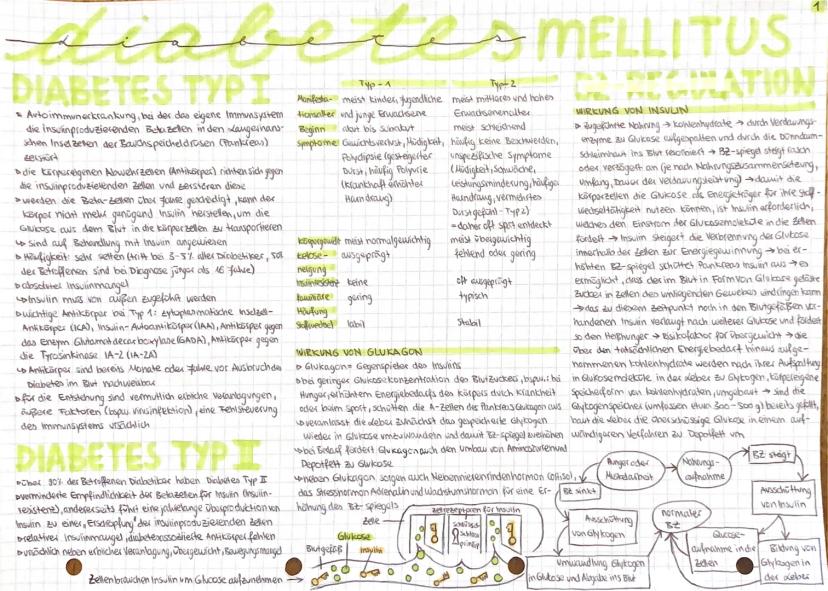 1
diabetes MELLITUS
DIABETES TYP I
» Autoimmunerkrankung, bei der das eigene Immunsystem
die Insulinproduzierenden Betazellen in den Langerhans-
schen Inselzellen der Bauchspeicheldrüsen (Pankreas)
zerstört
» die körpereigenen Abwehrzellen (Antikörper) richten sich gegen
die insulinproduzierenden Zellen und zerstören diese
» werden die Beta-Zellen über Jahre geschädigt, kann der
Körper nicht mehr genügend Insulin herstellen, um die
Glukose aus dem Blut in die Körperzellen zu transportieren
↳ sind auf Behandlung mit Insulin angewiesen
» Häufigkeit: sehr selten (tritt bei 3-5% aller Diabetiker, 50%
der Betroffenen sind bei Diagnose jünger als 16 Jahre)
» absoluter Insulinmangel
↳ Insulin muss von außen zugeführt werden
» wichtige Antikörper bei Typ 1: zytoplasmatische Inselzell-
Antikörper (ICA), Insulin-Autoantikörper (IAA), Antikörper gegen
das Enzym Glutamatdecarboxylase (GADA), Antikörper gegen
die Tyrosinkinase IA-2 (IA-2A)
↳ Antikörper sind bereits Monate oder Jahre vor Ausbruch des
Diabetes im Blut nachweisbar
» für die Entstehung sind vermutlich erbliche Veranlagungen,
äußere Faktoren (bspw. Virusinfektion), eine Fehlsteuerung
des Immunsystems ursächlich
DIABETES TYP II
» über 90% der Betroffenen Diabetiker haben Diabetes Typ II
» verminderte Empfindlichkeit der Betazellen für Insulin (Insulin-
resistenz), anderseits führt eine jahrelange Überproduktion von
Insulin zu einer "Erschöpfung" der insulinproduzierenden Zellen
» relativer Insulinmangel, diabetesassoziierte Antikörper fehlen
» ursächlich neben erblicher Veranlagung, Übergewicht, Bewegungsmangel
Zellen brauchen Insulin um Glucose aufzunehmen →
Typ-1 Typ-2
Manifesta- meist Kinder, Jugendliche meist mittleres und hohes
tionsalter und junge Erwachsene Erwachsenenalter
Beginn akut bis subakut meist schleichend
Symptome Gewichtsverlust, Müdigkeit, häufig keine Beschwerden,
Polydipsie (gesteigerter unspezifische Symptome
Durst, häufig Polyurie (Müdigkeit, Schwäche,
(krankhaft erhöhter Leistungsminderung, häufiger
Harndrang) Harndrang, vermehrtes
Durstgefühl - Typ 2)
= daher oft spät entdeckt
Körpergewicht meist normalgewichtig meist übergewichtig
Ketose- ausgeprägt fehlend oder gering
neigung
Insulinresistenz keine oft ausgeprägt
familiäre gering typisch
Häufung
Stoffwechsel labil stabil
WIRKUNG VON GLUKAGON
» Glukagon = Gegenspieler des Insulins
» bei geringer Glukosekonzentration des Blutzuckers, bspw. bei
Hunger, erhöhtem Energiebedarfs des Körpers durch Krankheit
oder beim Sport, schütten die A-Zellen des Pankreas Glukagon aus
» veranlasst die Leber zunächst das gespeicherte Glykogen
wieder in Glukose umzuwandeln und damit BZ-Spiegel zu erhöhen
» bei Bedarf fördert Glukagon auch den Umbau von Aminosäuren und
Depotfett zu Glukose
» neben Glukagon sorgen auch Nebennierenrindenhormon (Cortisol),
das Stresshormon Adrenalin und Wachstumshormon für eine Er-
höhung des BZ-Spiegels
Zellrezeptoren für Insulin
Zelle
Schlüssel-
Schloss
Prinzip
Glukose
Blutgefäß Insulin
BZ-REGULATION
WIRKUNG VON INSULIN
» zugeführte Nahrung → Kohlenhydrate → durch Verdauungs-
enzyme zu Glukose aufgespalten und durch die Dünndarm-
schleimhaut ins Blut resorbiert → BZ-Spiegel steigt rasch
oder verzögert an (je nach Nahrungszusammensetzung,
Umfang, Dauer der Verdauungsleistung) → damit die
Körperzellen die Glukose als Energieträger für ihre Stoff-
wechseltätigkeit nutzen können, ist Insulin erforderlich,
welches den Einstrom der Glukosemoleküle in die Zellen
fördert → Insulin steigert die Verbrennung der Glukose
innerhalb der Zellen zur Energiegewinnung → bei er-
höhten BZ-Spiegel schüttet Pankreas Insulin aus → es
ermöglicht, dass der im Blut in Form von Glukose gelöste
Zucker in Zellen des umliegenden Gewebes eindringen kann
→ das zu diesem Zeitpunkt noch in den Blutgefäßen vor-
handenen Insulin verlangt nach weiterer Glukose und fördert
so den Heißhunger → Risikofaktor für Übergewicht → die
über den tatsächlichen Energiebedarf hinaus aufge-
nommenen Kohlenhydrate werden nach ihrer Aufspaltung
in Glukosemoleküle in der Leber zu Glykogen, körpereigene
Speicherform von Kohlenhydraten, umgebaut → sind die
Glykogenspeicher (umfassen etwa 300-500g) bereits gefüllt,
baut die Leber die überschüssige Glukose in einem auf-
wändigeren Verfahren zu Depotfett um
Hunger oder
Muskelarbeit
Nahrungs-
aufnahme
BZ steigt
BZ sinkt
Ausschüttung
von Insulin
Ausschüttung
von Glykogen
normaler
BZ
Glucose-
aufnahme in die
Zellen
Bildung von
Glykogen in
der Leber
Umwandlung Glykogen
in Glukose und Abgabe ins Blut